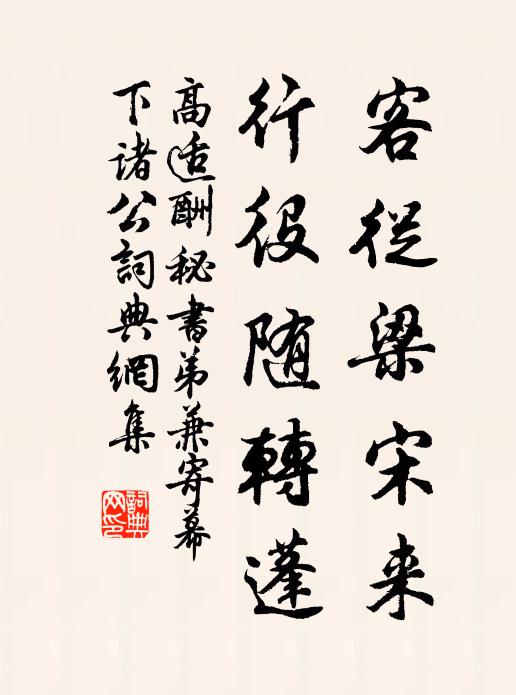 客從梁宋来
行役随轉蓬
高适酬秘書弟兼寄幕
下諸公詞典網集
詞典
网印